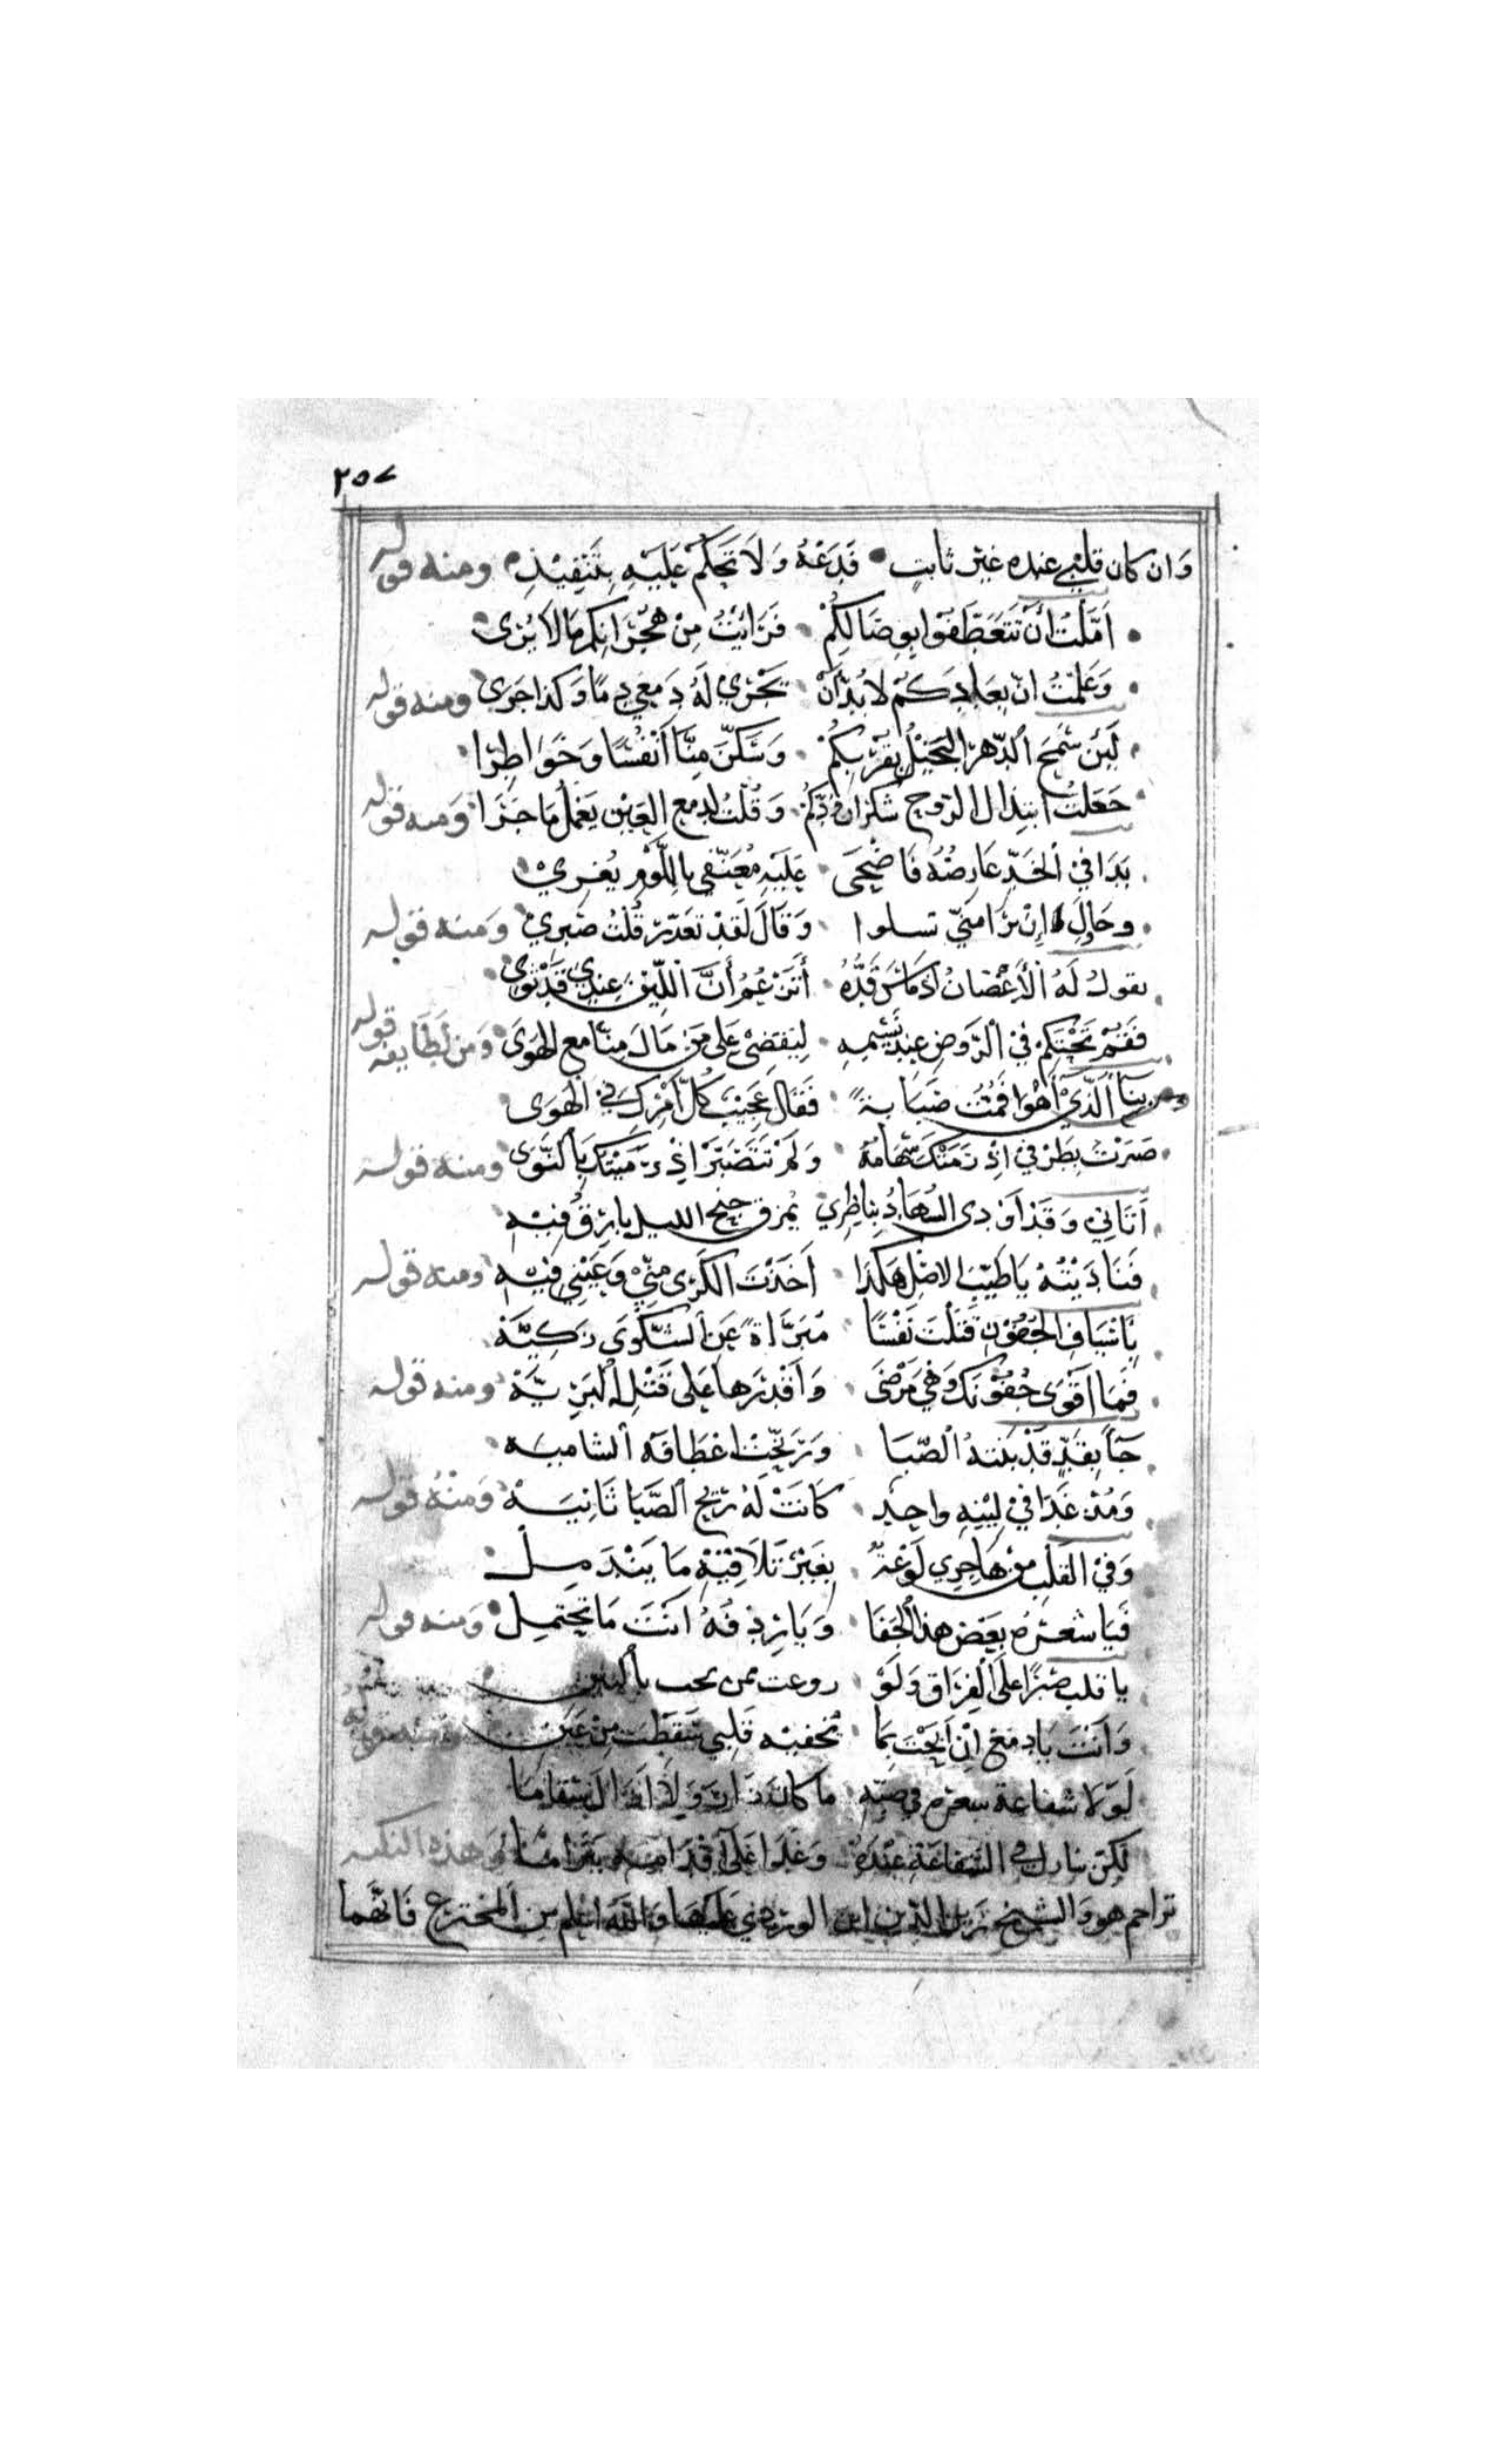 ٢٥٧
وَان كان قلبي عنده غَيْر ثابتٍ • فَدَعْهُ وَلَا تَحْكُمْ عَلَيْهِ بِتَنْفِيْذِه ومنه قوله
• اَمَّلْتُ أنْ تَتَعَطَّفُوْا بِوِصَالِكُمْ • فَرَاَيْتُ مِنْ هُجْرَانِكم مَالَا يُرَى
• وَعَلمْتُ انّ بِعَادَكُمْ لا بُدّ أنْ • يَجْرِيْ لَهُ دَمْعِي دِمًا وَكذا جَرَى ومنه قوله
• لَئِن سَمَحَ ٱلدّهرُ البَخيْلُ بِقُرْبِكُمْ • وَسَكَّنَ مِنّا أنْفُسًا وَخَوَاطِرًا
• جَعَلتُ ابتِذَال الرّوحِ شكرَان • وَقُلتُ لِدمع العَيْنِ يَعْمَلُ مَا جَرَا وَمنه قوله
• بَدَا في ٱلخَدِّ عَارِضُهُ فَاضْحَى • عَلَيْهِ مُعَنّفي بِاللَّوْمِ يُغْرِيْ
• وحَاوِلَ اِنْ يَرَا مِنّي تسلوا • وَقَالَ لَقَدْ تَعَذّرَ قُلْتُ صَبْرِيْ وَمنه قوله
• يقولُ لَهُ ٱلأغْصَانُ اذ مَاسَ قَدُّهُ • أتَزْعُمُ أنَّ اللّيْنَ عِنْدِي قَدْ ثَوى
• فَقُمْ نَحْتَكِمْ في ٱلرّوضِ عِندَ نَسِيمِهِ • لِيَقضِيْ عَلى مَن مَالَ مِنّا مع الهَوَى وَمن لَطَايفه قوله
رمينا ٱلّذيْ أهْوَا فَمُتْ صَبَابَةً • فقَالَ عَجِيْبٌ كُلّ أمْرِكَ في الهَوَى
• صَبَرْتَ بِطَرْفي اِذ رَمَتْكَ سِهَامُهُ • وَلَمْ تَتَصَبّرْ اذ رَمَيْتُكَ بِالنّوَى ومنه قوله
• أتَاني وَقَدْ أوْدى السُّهَادُ بِنَاظِري • يُمَزّق جِنحَ الليل بارِقُ فيْهِ
• فَنَادَيْتُهُ يَا طَيّبَ الاصْلِ هَكَذَا • اَخَذْتَ الكَرَى مِنّيْ وَعَيْنِي فيْهِ ومنه قوله
• بأسْيَافِ الجُفُوْنِ قَتَلْتَ نَفْسًا • مُبَرَّاةً عَنِ الشّكْوَى زَكِيَّةْ
• فَمَا أقوَى جُفُوْنَكَ وَهْيَ مَرْضَى • وَاَقْدَرهَا عَلى قَتْلِ ٱلْبَرِيَّةْ ومنه قوله
• جَآ بِقَدٍّ قَدْ بَنَتهُ ٱلصّبَا • وَرَنّحَتْ اعْطَافَه الشاميَه
• وَمُذ غَدَا فيْ لِيْنِهِ واحِدٍ • كَانَتْ لَهُ رِيْحُ ٱلصَّبَا ثَانِيَةْ وَمنْهُ قوله
• وَفيْ القَلْبِ من هَاجِري لَوْعَةٌ • بِغَيْرْ تَلَاقِيْهْ مَا يَنْدَمِلْ
• فَيَا شَعْرَهُ بَعْضُ هذا ٱلجَفَا • وَيَا رِدْفَهُ انْتَ مَا تَحْتَمِلْ وَمنه قوله
• يا قلب صَبْرًا عَلَى ٱلفِرَاقِ وَلَوْ • روعت ممن تحب بالبين
• وَأنْتَ يَا دمْعُ اِنْ أبَحْتَ بِمَا • تخفيْه قَلبِي سَقَطْتَ مِنْ عَيْنِ ومنه قوله
• لَوْلا شفاعة شعره في صبّه ما كان زار وَلَا أزَالَ سقامَا
لكن تنازل في الشفاعَة عِنْدَهُ وَغَدَا عَلَى اَقْدَامِه يَتَرَامَا وَهذه النكته
تزاحم هو وَالشيخ زين الدّين ابن الوردي عَليْهَا وَاللّهُ اَعْلم مِن المُخترع فَانّهَما